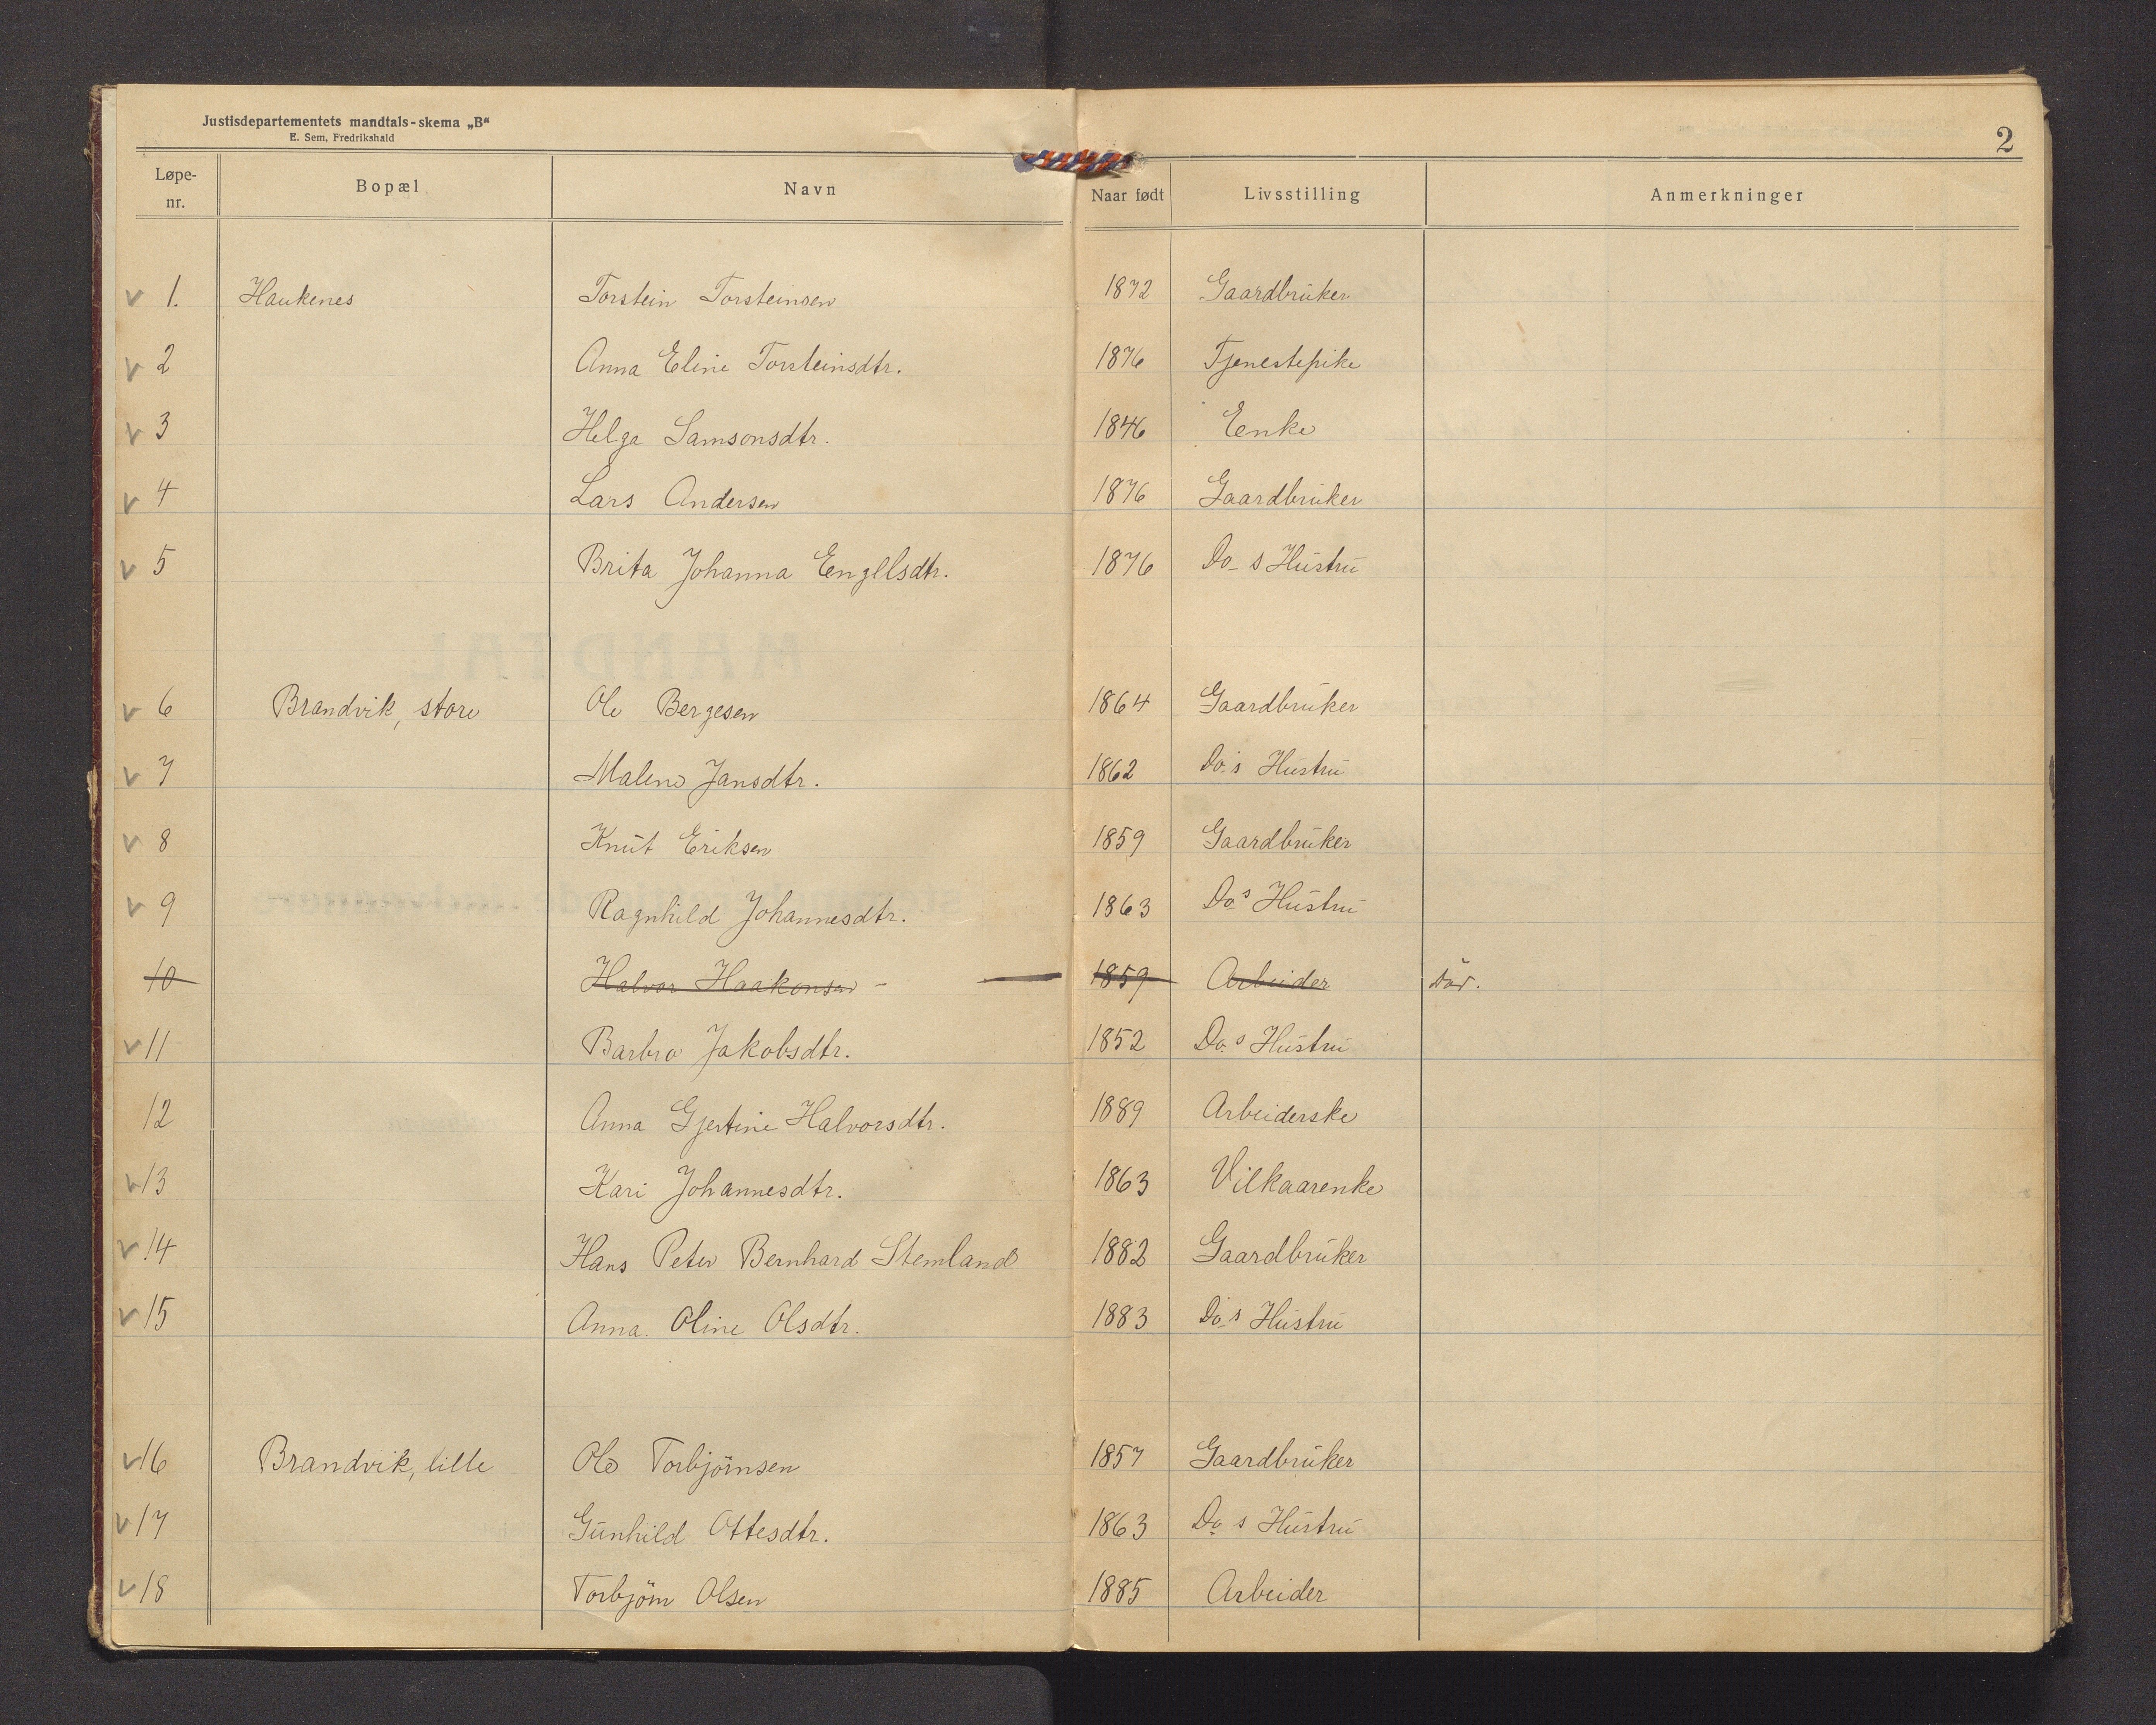 Justisdepartementets mandtals-skema „B“
E. Sem, Fredrikshald
2
Løpe-nr. Bopæl Navn Naar født Livsstilling Anmerkninger
v 1. Haukenes Torstein Torsteinsen 1872 Gaardbruker
v 2 Anna Eline Torsteinsdtr. 1876 Tjenestepike
v 3 Helga Samsonsdtr. 1846 Enke
v 4 Lars Andersen 1876 Gaardbruker
v 5 Brita Johanna Engelsdtr. 1876 Do_s Hustru
v 6 Brandvik, store Ole Bergesen 1864 Gaardbruker
v 7 Malene Jansdtr. 1862 Do.s Hustru
v 8 Knut Eriksen 1859 Gaardbruker
v 9 Ragnhild Johannesdtr. 1863 Do s Hustru
10 Halvor Haakonsen - 1859 Arbeider Död.
v 11 Barbro Jakobsdtr. 1852 Do s Hustru
12 Anna Gjertine Halvorsdtr. 1889 Arbeiderske
v 13 Kari Johannesdtr. 1863 Vilkaarenke
v 14 Hans Peter Bernhard Stemland 1882 Gaardbruker
v 15 Anna Oline Olsdtr. 1883 Do_s Hustru
v 16 Brandvik, lille Ole Torbjörnsen 1857 Gaardbruker
v 17 Gunhild Ottesdtr. 1863 Do s Hustru
v 18 Torbjörn Olsen 1885 Arbeider